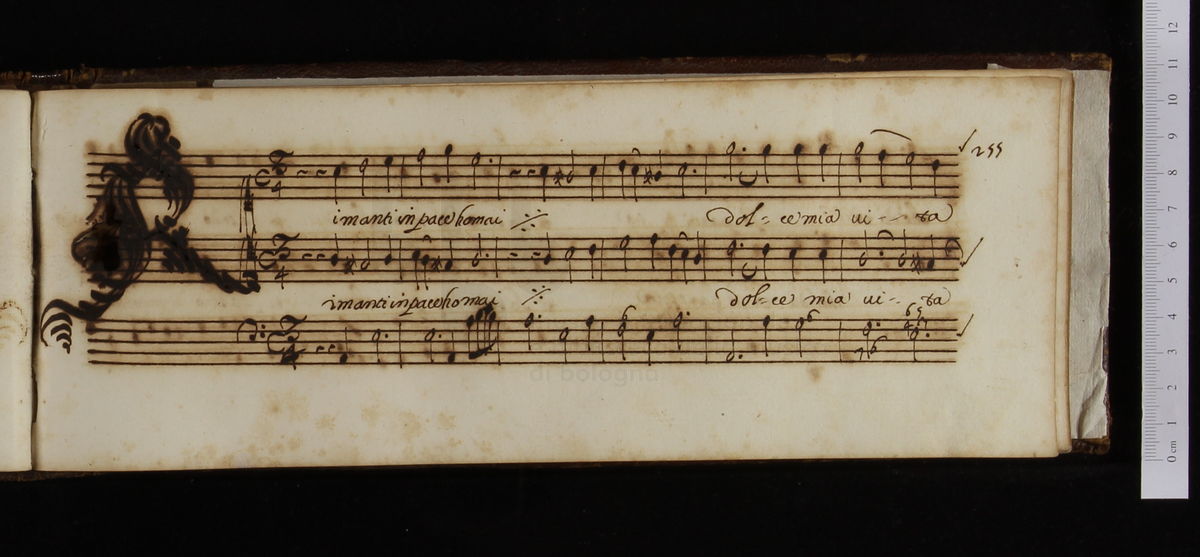 255
R
imanti in pace homai
dol - ce mia vi - - ta
imanti in pace homai
dol - ce mia vi - - ta
di bologna
0 cm 1 2 3 4 5 6 7 8 9 10 11 12